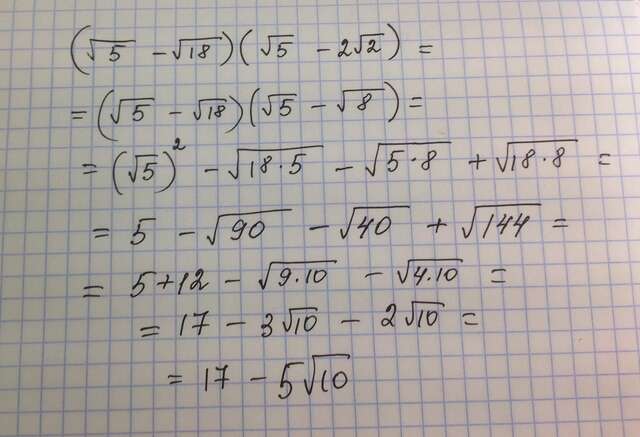 (√5 - √18)(√5 - 2√2) =
= (√5 - √18)(√5 - √8) =
= (√5)² - √18·5 - √5·8 + √18·8 =
= 5 - √90 - √40 + √144 =
= 5+12 - √9·10 - √4·10 =
= 17 - 3√10 - 2√10 =
= 17 - 5√10